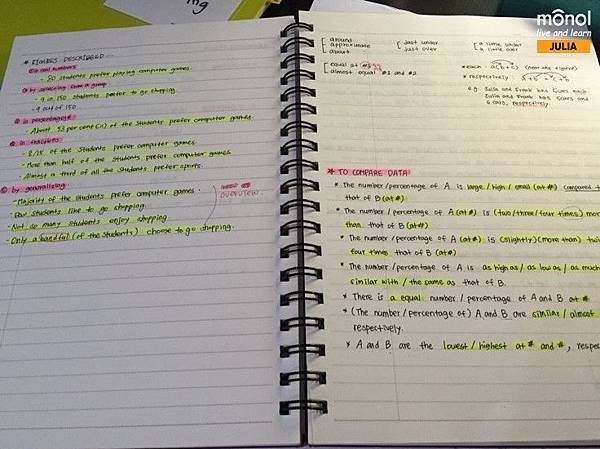 ng
mônol
live and learn
JULIA
* FIGURES DESCRIBED
① in real numbers
- 50 students prefer playing computer games.
② by selecting from a group
- 9 in 150 students prefer to go shopping.
- 9 out of 150
③ in percentages
- About 53 per cent (%) of the students prefer computer games.
④ in fractions
- 8/15 of the students prefer computer games
- More than half of the students prefer computer games
- Almost a third of all the students prefer sports.
⑤ by generalizing
- Majority of the students prefer computer games.
- Few students like to go shopping.
- Not so many students enjoy shopping
- Only a handful (of the students) choose to go shopping.
OVERVIEW.
around
approximate
about
just under
just over
a little under
a little over
equal at
almost equal #1 and #2
* each - a(b+c) (near the figure)
* respectively
e.g. Julia and Frank has 5 cars each.
Julia and Frank has 5 cars and
6 cars, respectively.
* TO COMPARE DATA:
* The number/percentage of A is large/high/small (at #) compared t
that of B (at #)
* The number/percentage of A (at #) is (two/three/four times) mor
than that of B (at #)
* The number/percentage of A (at #) is (slightly)(more than) twi
four times that of B (at #)
* The number/percentage of A is as high as/as low as/as much
similar with/the same as that of B.
* There is a equal number/percentage of A and B at #
* (The number/percentage of) A and B are similar/almost
respectively.
* A and B are the lowest/highest at # and #, respec